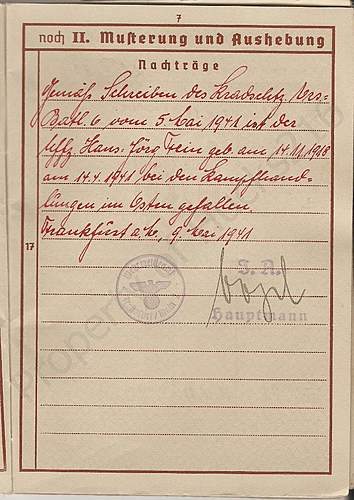 7
noch II. Musterung und Aushebung
Nachträge
Gemäß Schreiben des Kradschtz. Ers-
Batl. 6 vom 5. Mai 1941 ist der
Uffz. Hans-Jörg Trein geb. am 14.11.1918
am 14.4.1941 bei den Kampfhand-
lungen im Osten gefallen.
Frankfurt a/, 9. Mai 1941
17
I. A.
Hauptmann